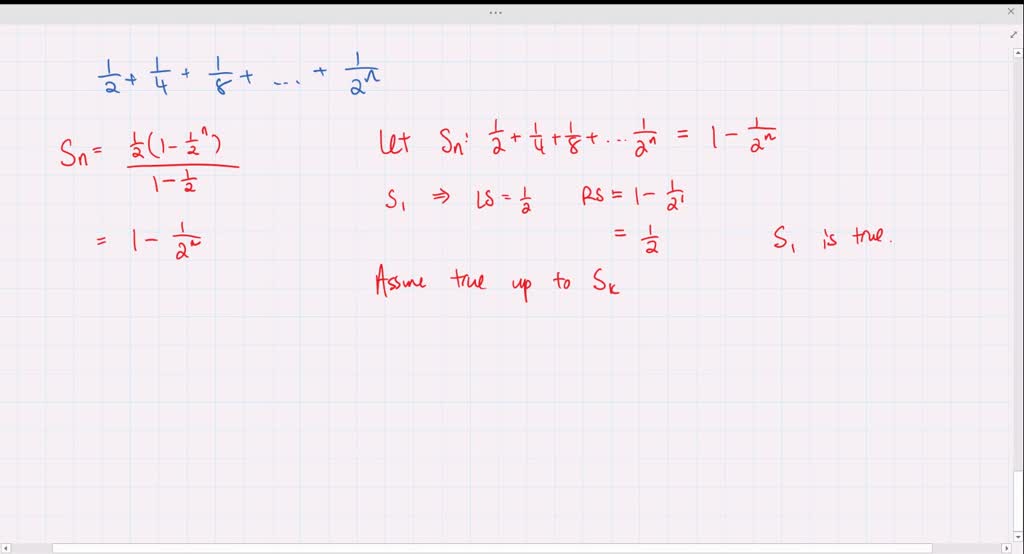 1/2 + 1/4 + 1/8 + ... + 1/2^n
Sn = 1/2(1 - 1/2^n) / 1 - 1/2
= 1 - 1/2^n
Let Sn: 1/2 + 1/4 + 1/8 + ... 1/2^n = 1 - 1/2^n
S1 ⇒ LS = 1/2 RS = 1 - 1/2^1
= 1/2 S1 is true.
Assume true up to Sk